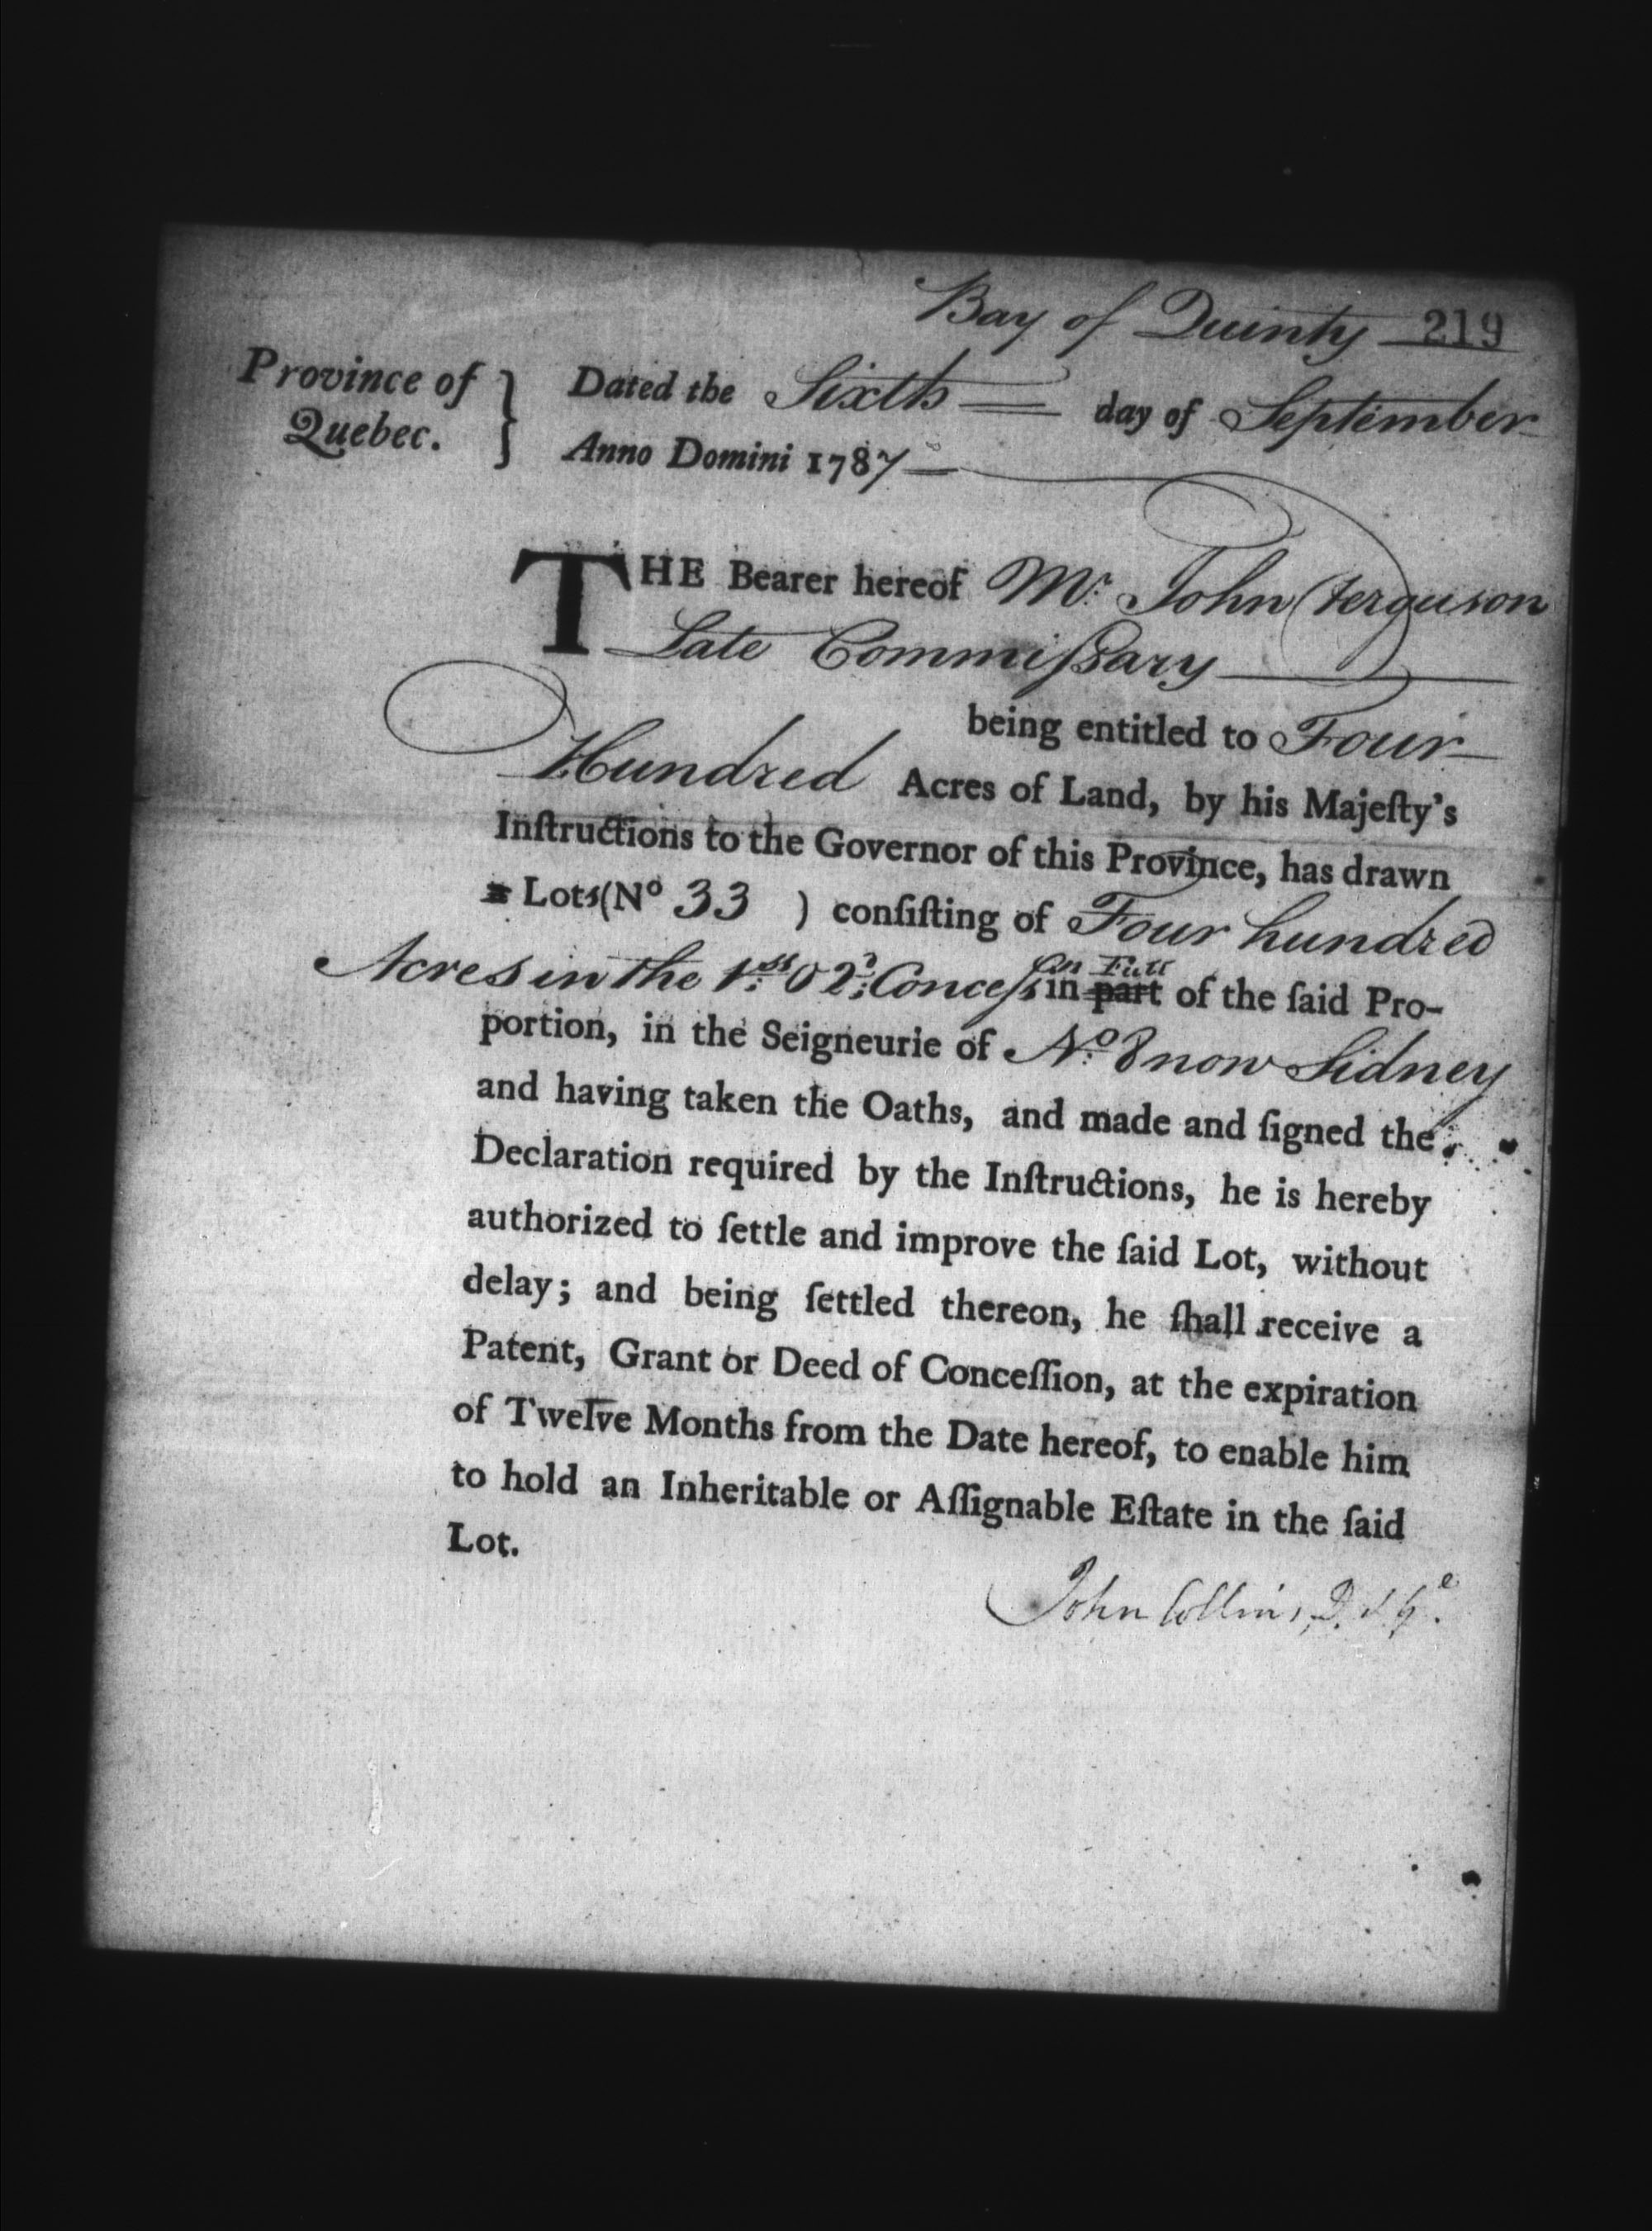 Bay of Quinty 219
Province of Quebec. } Dated the Sixth day of September
Anno Domini 1787
THE Bearer hereof Mr. John Ferguson
Late Commiſsary
being entitled to Four
Hundred Acres of Land, by his Majeſty's
Inſtructions to the Governor of this Province, has drawn
a Lots (No 33 ) conſiſting of Four hundred
Acres in the 1st. & 2d. Conceſs in part In Full of the ſaid Pro-
portion, in the Seigneurie of No. 8 now Sidney
and having taken the Oaths, and made and ſigned the
Declaration required by the Inſtructions, he is hereby
authorized to ſettle and improve the ſaid Lot, without
delay; and being ſettled thereon, he ſhall receive a
Patent, Grant or Deed of Conceſſion, at the expiration
of Twelve Months from the Date hereof, to enable him
to hold an Inheritable or Aſſignable Eſtate in the ſaid
Lot.
John Collins, D. S. Ge.